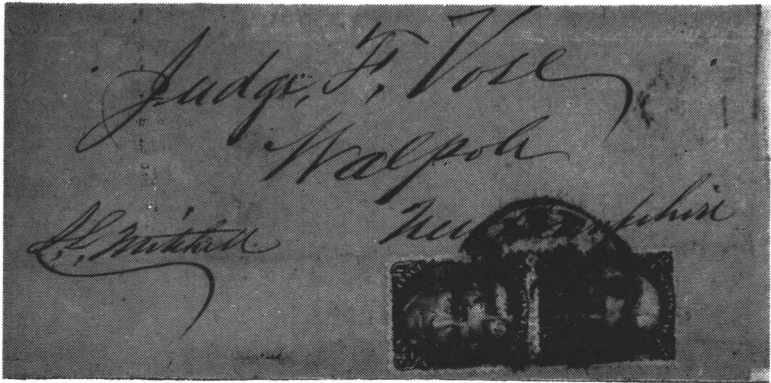 Judge, F, Vose
Walpole
New Hampshire
Mitchell